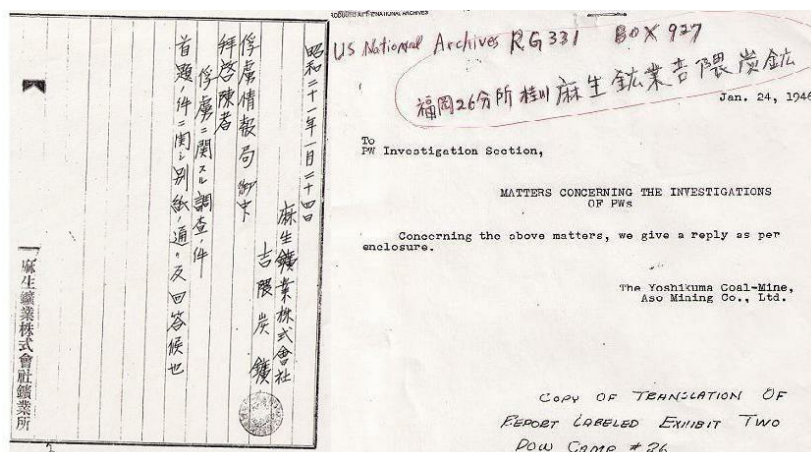 昭和二十一年一月二十四日
麻生鑛業株式會社
吉隈炭鑛
俘虜情報局御中
拝啓陳者
俘虜ニ関スル調査ノ件
首題ノ件ニ関シ別紙ノ通リ及回答候也
麻生鑛業株式會社鑛業所
US National Archives RG 331 BOX 927
福岡26分所 桂川 麻生鉱業吉隈炭鉱
Jan. 24, 1946
To
PW Investigation Section,
MATTERS CONCERNING THE INVESTIGATIONS
OF PWs
Concerning the above matters, we give a reply as per
enclosure.
The Yoshikuma Coal-Mine,
Aso Mining Co., Ltd.
COPY OF TRANSLATION OF
REPORT LABELED EXHIBIT TWO
POW CAMP # 26